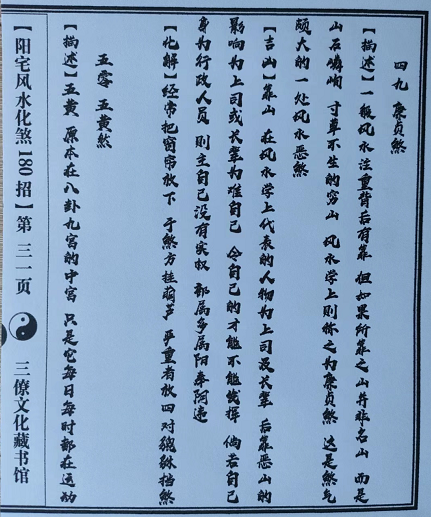 四九 廉贞煞
【描述】一般风水注重背后有靠 但如果所靠之山并非名山 而是
山石嶙峋 寸草不生的穷山 风水学上则称之为廉贞煞 这是煞气
颇大的一处风水恶煞
【吉凶】靠山 在风水学上代表的人物为上司及长辈 后靠恶山的
影响为上司或长辈为难自己 令自己的才能不能发挥 倘若自己
身为行政人员 则主自己没有实权 部属多属阳奉阿违
【化解】经常把窗帘放下 于煞方挂葫芦 严重者放四对貔貅挡煞
五零 五黄煞
【描述】五黄 原本在八卦九宫的中宫 只是它每日每时都在运动
【阳宅风水化煞180招】第 三一页 三僚文化藏书馆